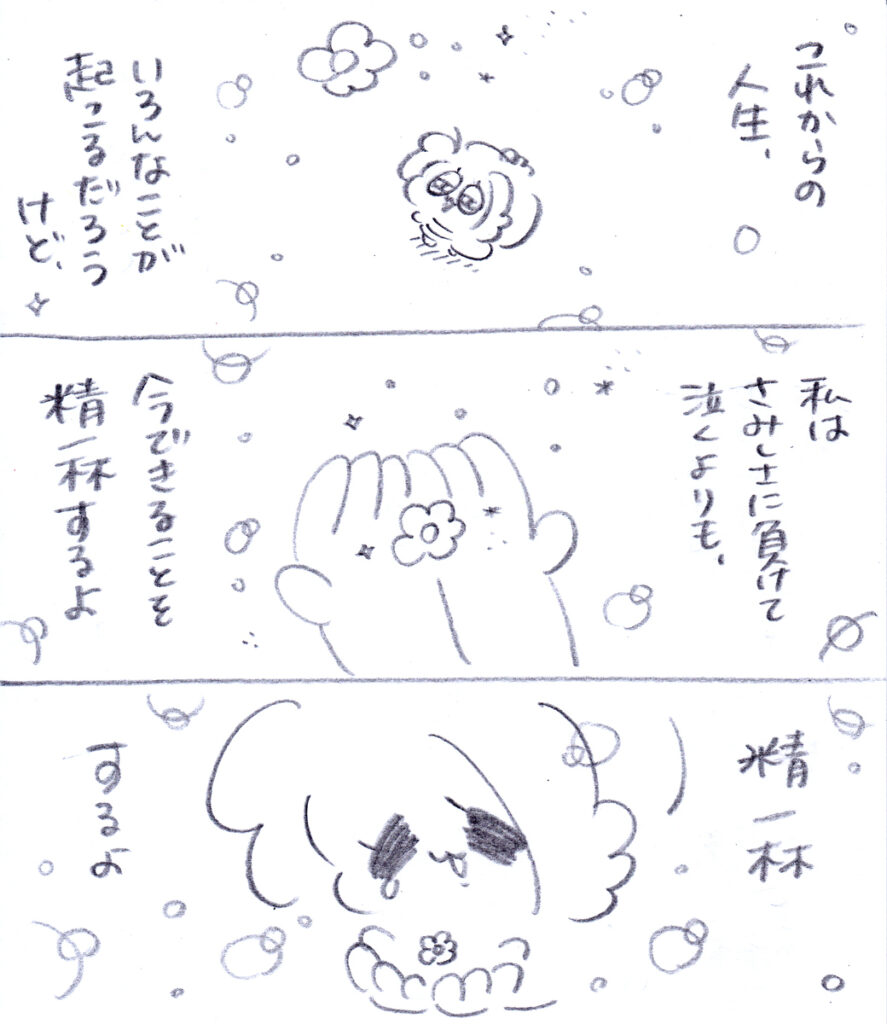 これからの
人生、
いろんなことが
起こるだろう
けど、
私は
さみしさに負けて
泣くよりも、
今できることを
精一杯するよ
精一杯
するよ